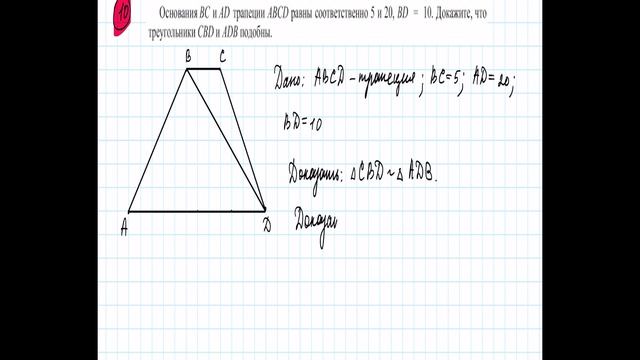 10
Основания BC и AD трапеции ABCD равны соответственно 5 и 20, BD = 10. Докажите, что
треугольники CBD и ADB подобны.
B C
Дано: ABCD - трапеция; BC=5; AD=20;
BD=10
Доказать: △CBD ~ △ADB.
A D
Доказат